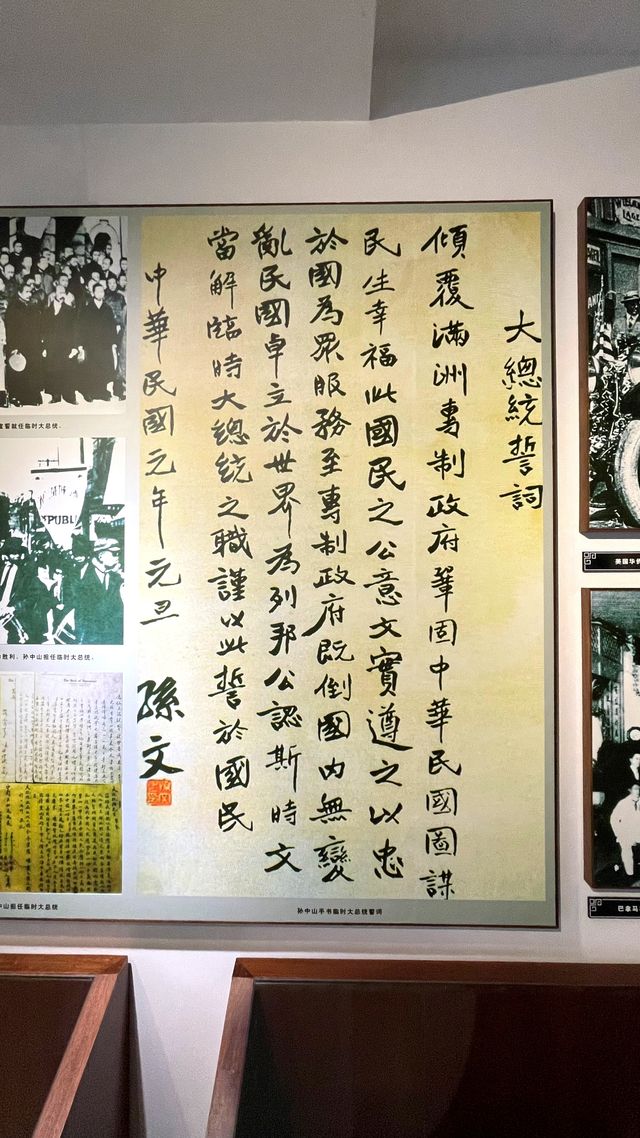 大總統誓詞
傾覆滿洲專制政府鞏固中華民國圖謀
民生幸福此國民之公意文實遵之以忠
於國為眾服務至專制政府既倒國內無變
亂民國卓立於世界為列邦公認斯時文
當解臨時大總統之職謹以此誓於國民
中華民國元年元旦
孫文
孙中山手书临时大总统誓词
宣誓就任临时大总统。
胜利，孙中山担任临时大总统。
中山担任临时大总统
PUBL
英国华侨
巴拿马